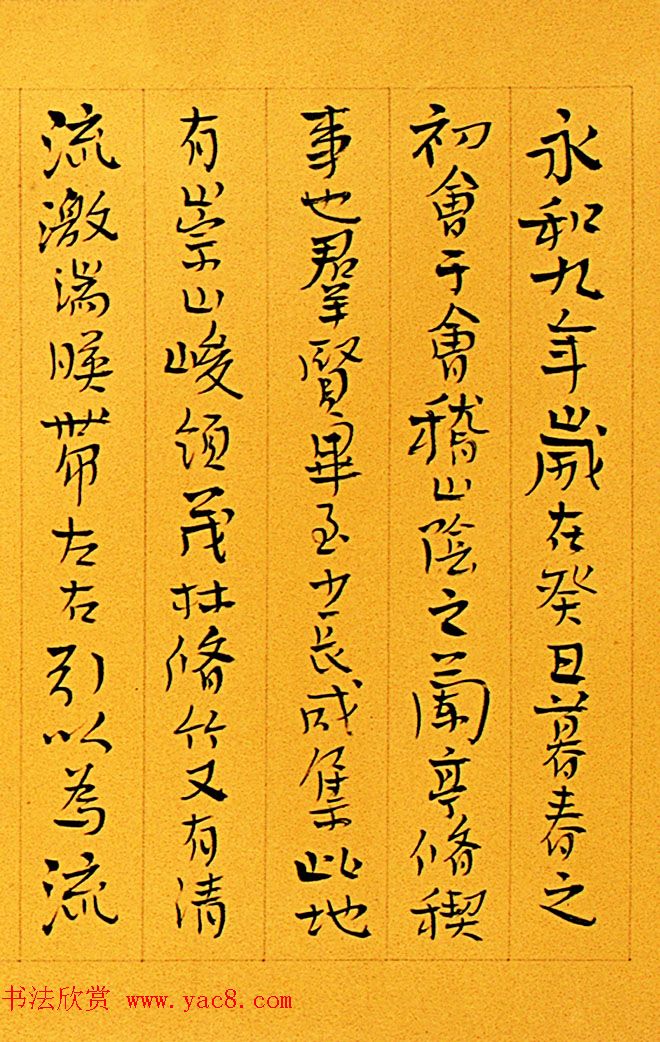 永和九年歲在癸丑暮春之
初會于會稽山陰之蘭亭脩稧
事也羣賢畢至少長咸集此地
有崇山峻領茂林脩竹又有清
流激湍暎帶左右引以為流
书法欣赏 www.yac8.com